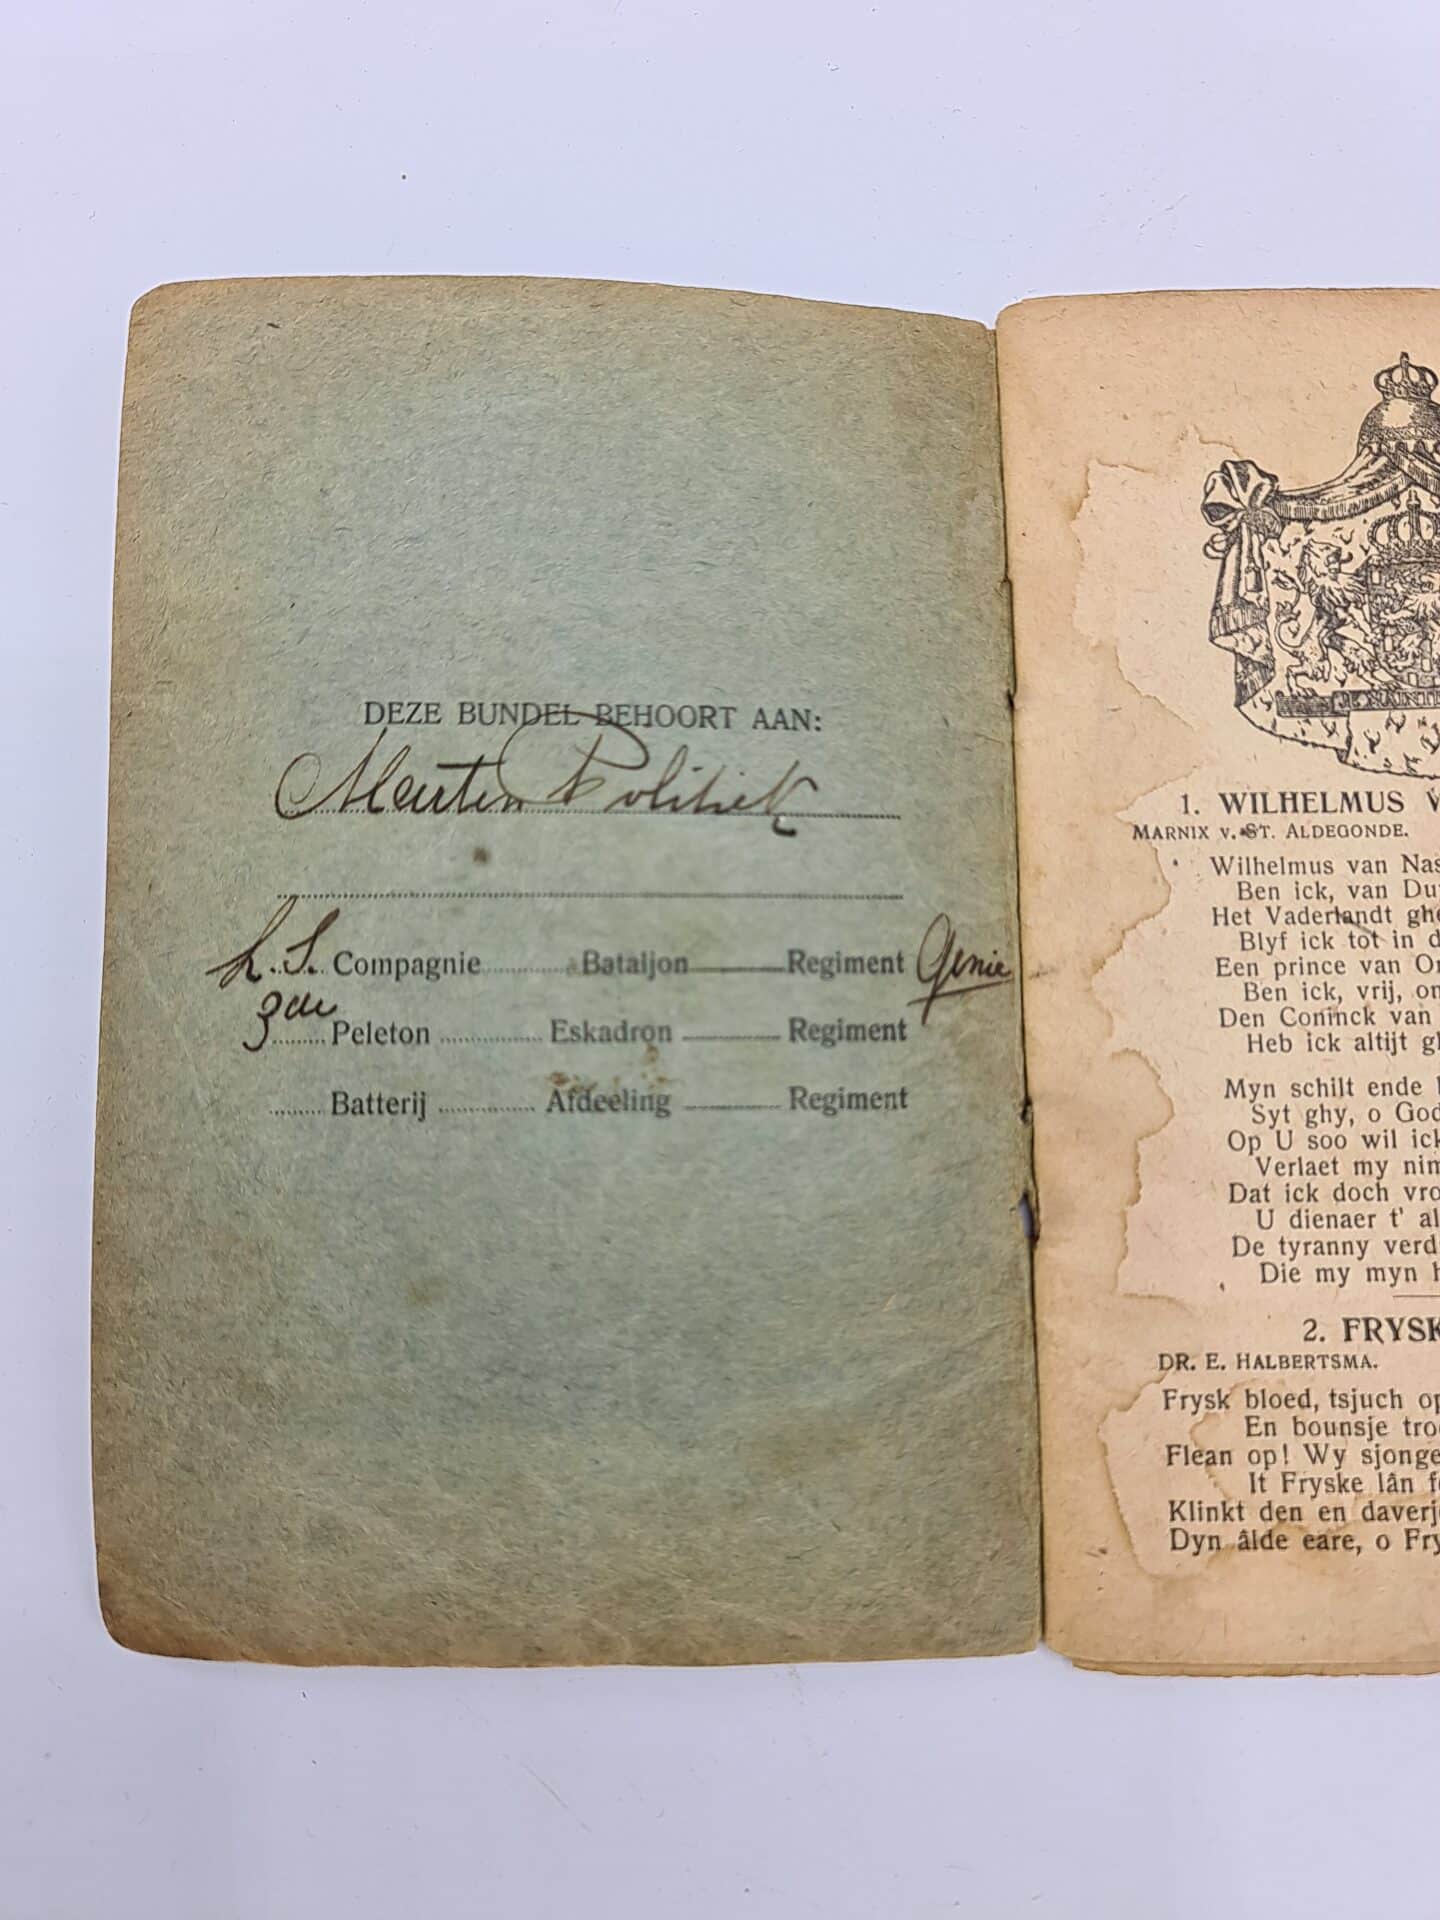 DEZE BUNDEL BEHOORT AAN:
Marten Politiek
L.S. Compagnie Bataljon Regiment Genie
3de Peleton Eskadron Regiment
Batterij Afdeeling Regiment
JE MAINTI
1. WILHELMUS V
MARNIX v. ST. ALDEGONDE.
Wilhelmus van Nas
Ben ick, van Du
Het Vaderlandt ghe
Blyf ick tot in d
Een prince van Or
Ben ick, vrij, on
Den Coninck van
Heb ick altijt gh
Myn schilt ende
Syt ghy, o God
Op U soo wil ick
Verlaet my nim
Dat ick doch vro
U dienaer t' al
De tyranny verd
Die my myn h
2. FRYSK
DR. E. HALBERTSMA.
Frysk bloed, tsjuch op
En bounsje tro
Flean op! Wy sjonge
It Fryske lân f
Klinkt den en daverj
Dyn âlde eare, o Fry